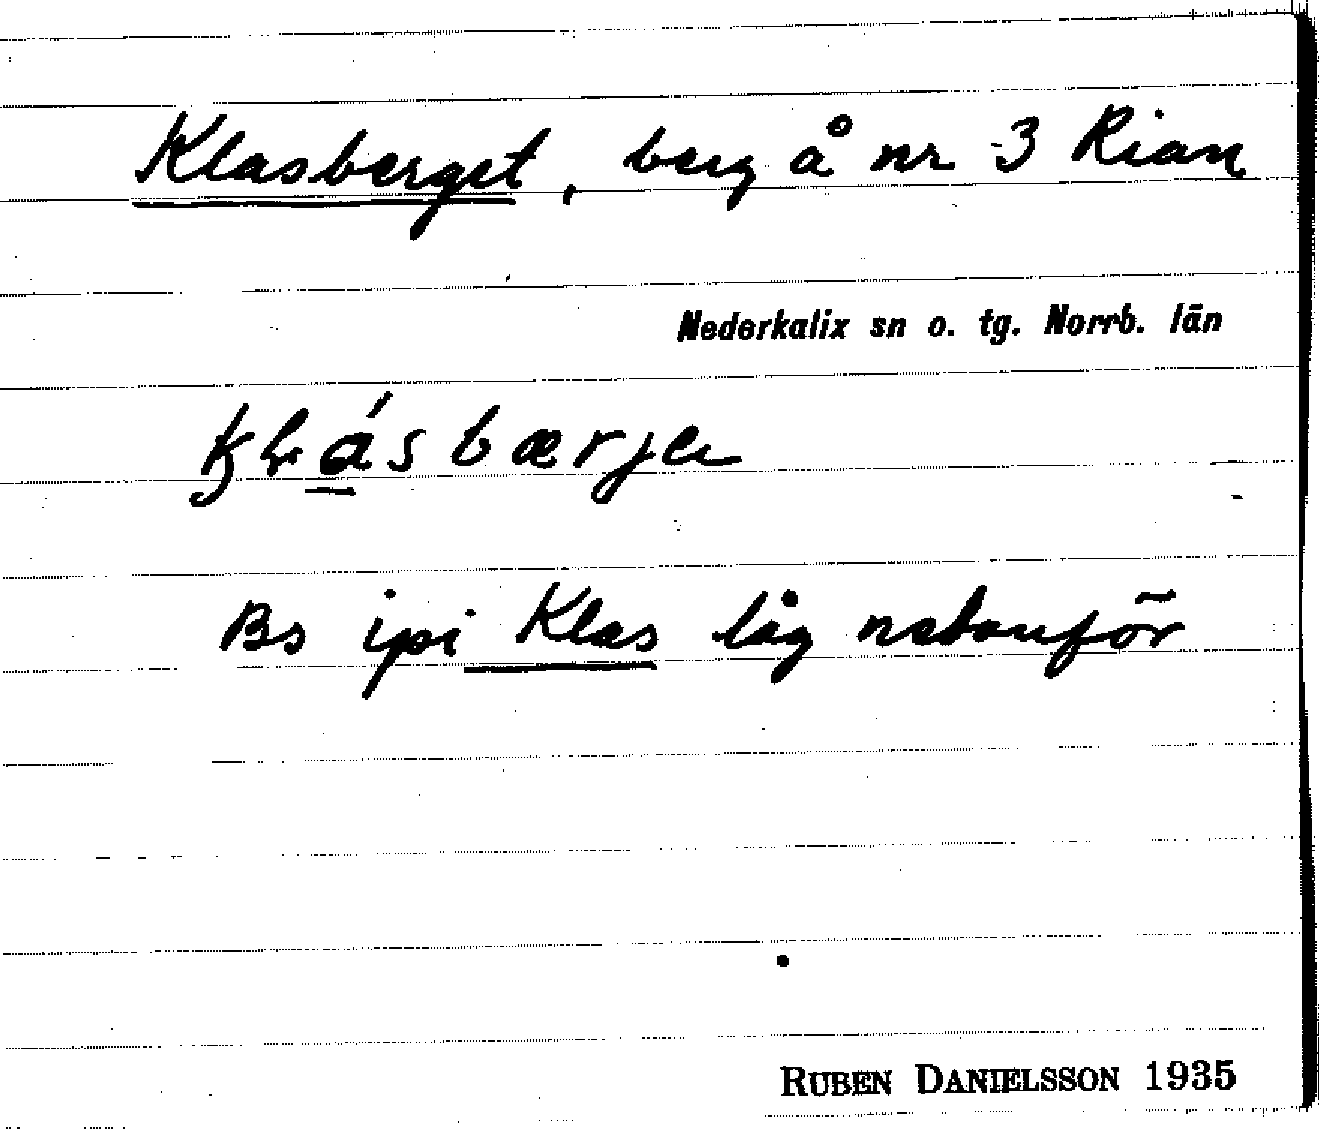 Klasberget, berg å nr 3 Rian
Nederkalix sn o. tg. Norrb. län
Bs ipi Klas låg nedanför
RUBEN DANIELSSON 1935